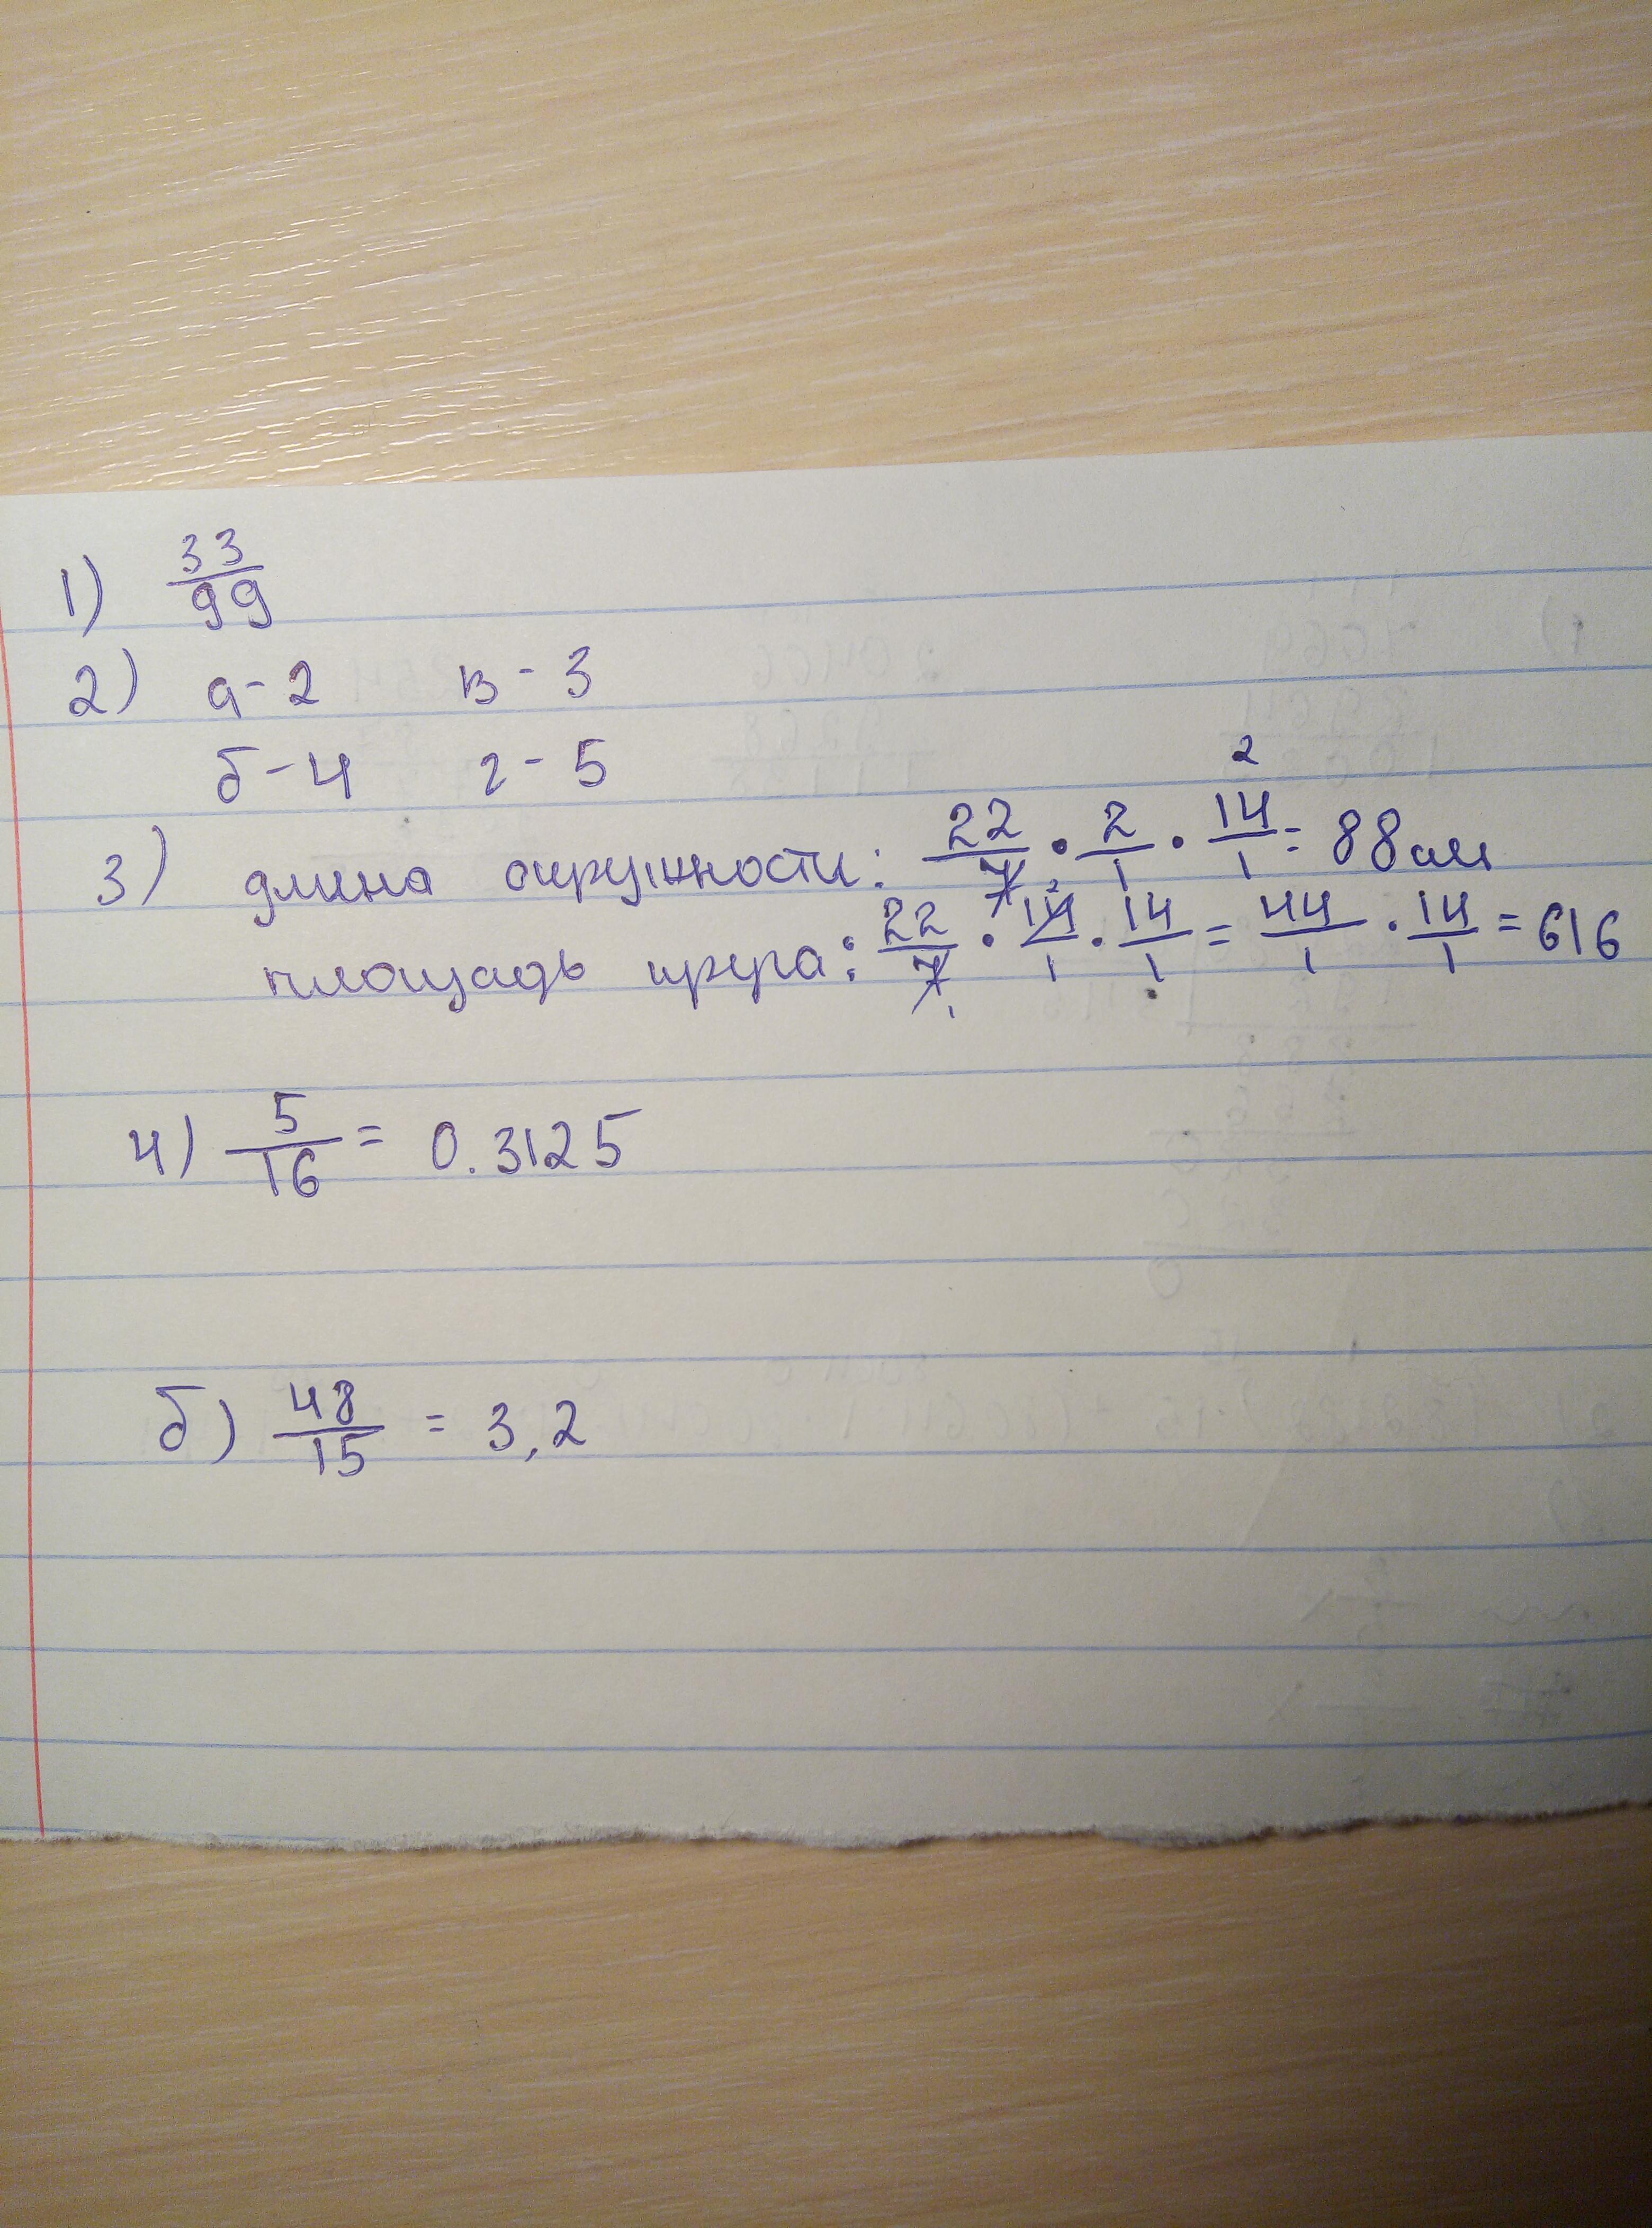 1) 33/99
2) а - 2 в - 3
б - 4 г - 5
3) длина окружности: 22/7 · 2/1 · 14/1 2 = 88 см
площадь круга: 22/7 1 · 14/1 2 · 14/1 = 44/1 · 14/1 = 616
4) 5/16 = 0.3125
б) 48/15 = 3,2